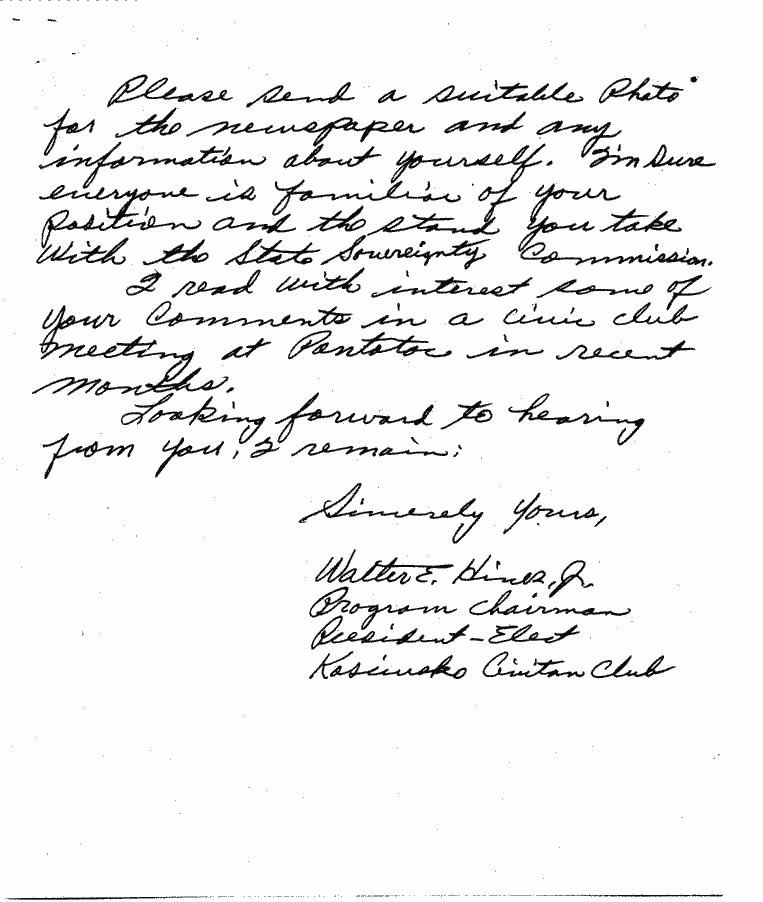 Please send a suitable Photo
for the newspaper and any
information about yourself. I'm Sure
everyone is familiar of your
position and the stand you take
With the State Sovereignty Commission.
I read with interest some of
your Comments in a civic club
meeting at Pontotoc in recent
months.
Looking forward to hearing
from you, I remain:
Sincerely Yours,
Walter E. Hines, Jr.
Program Chairman
President-Elect
Kosciusko Civitan Club